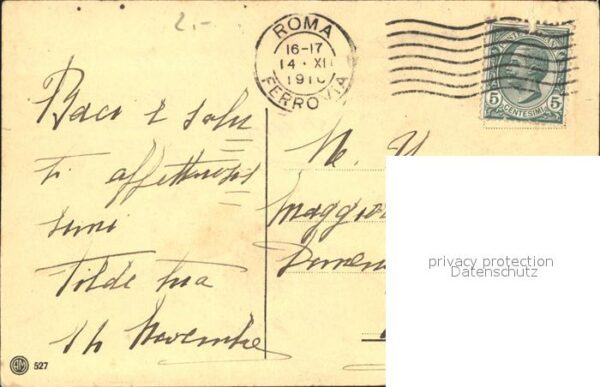 2.-
ROMA
16-17
14 · XI
191
FERROVIA
5 CENTESIMI 5
Baci e salu
ti affettuosis
simi
Tilde tua
14 Novembre
Maggio
Domen
privacy protection
Datenschutz
527